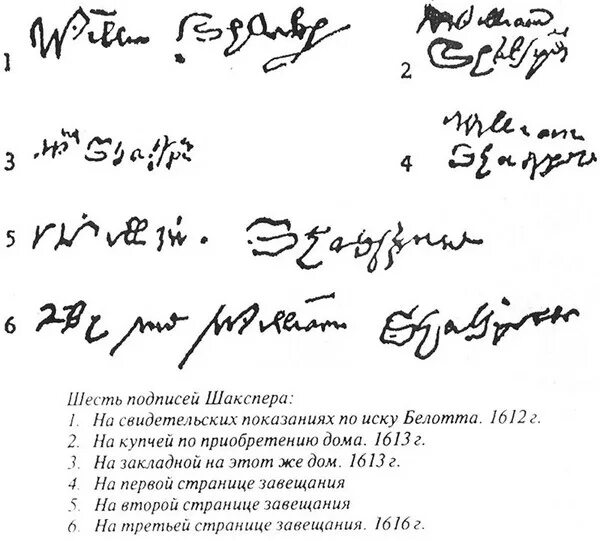 1
William
2
3
William
4
5
6 By me William
Шесть подписей Шакспера:
1. На свидетельских показаниях по иску Белотта. 1612 г.
2. На купчей по приобретению дома. 1613 г.
3. На закладной на этот же дом. 1613 г.
4. На первой странице завещания
5. На второй странице завещания
6. На третьей странице завещания. 1616 г.